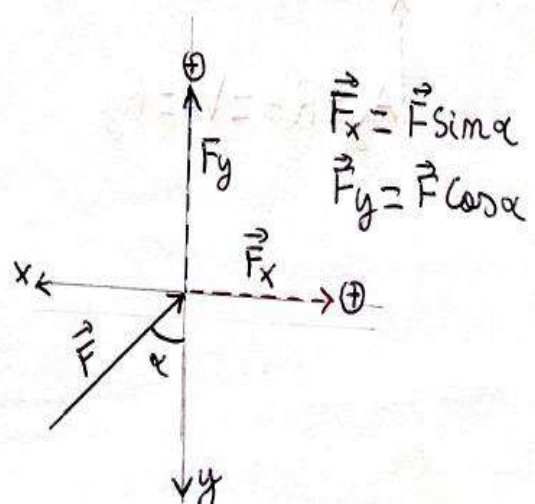 ⊕
F⃗x = F⃗ Sinα
Fy
F⃗y = F⃗ Cosα
F⃗x
x
⊕
F⃗
α
y